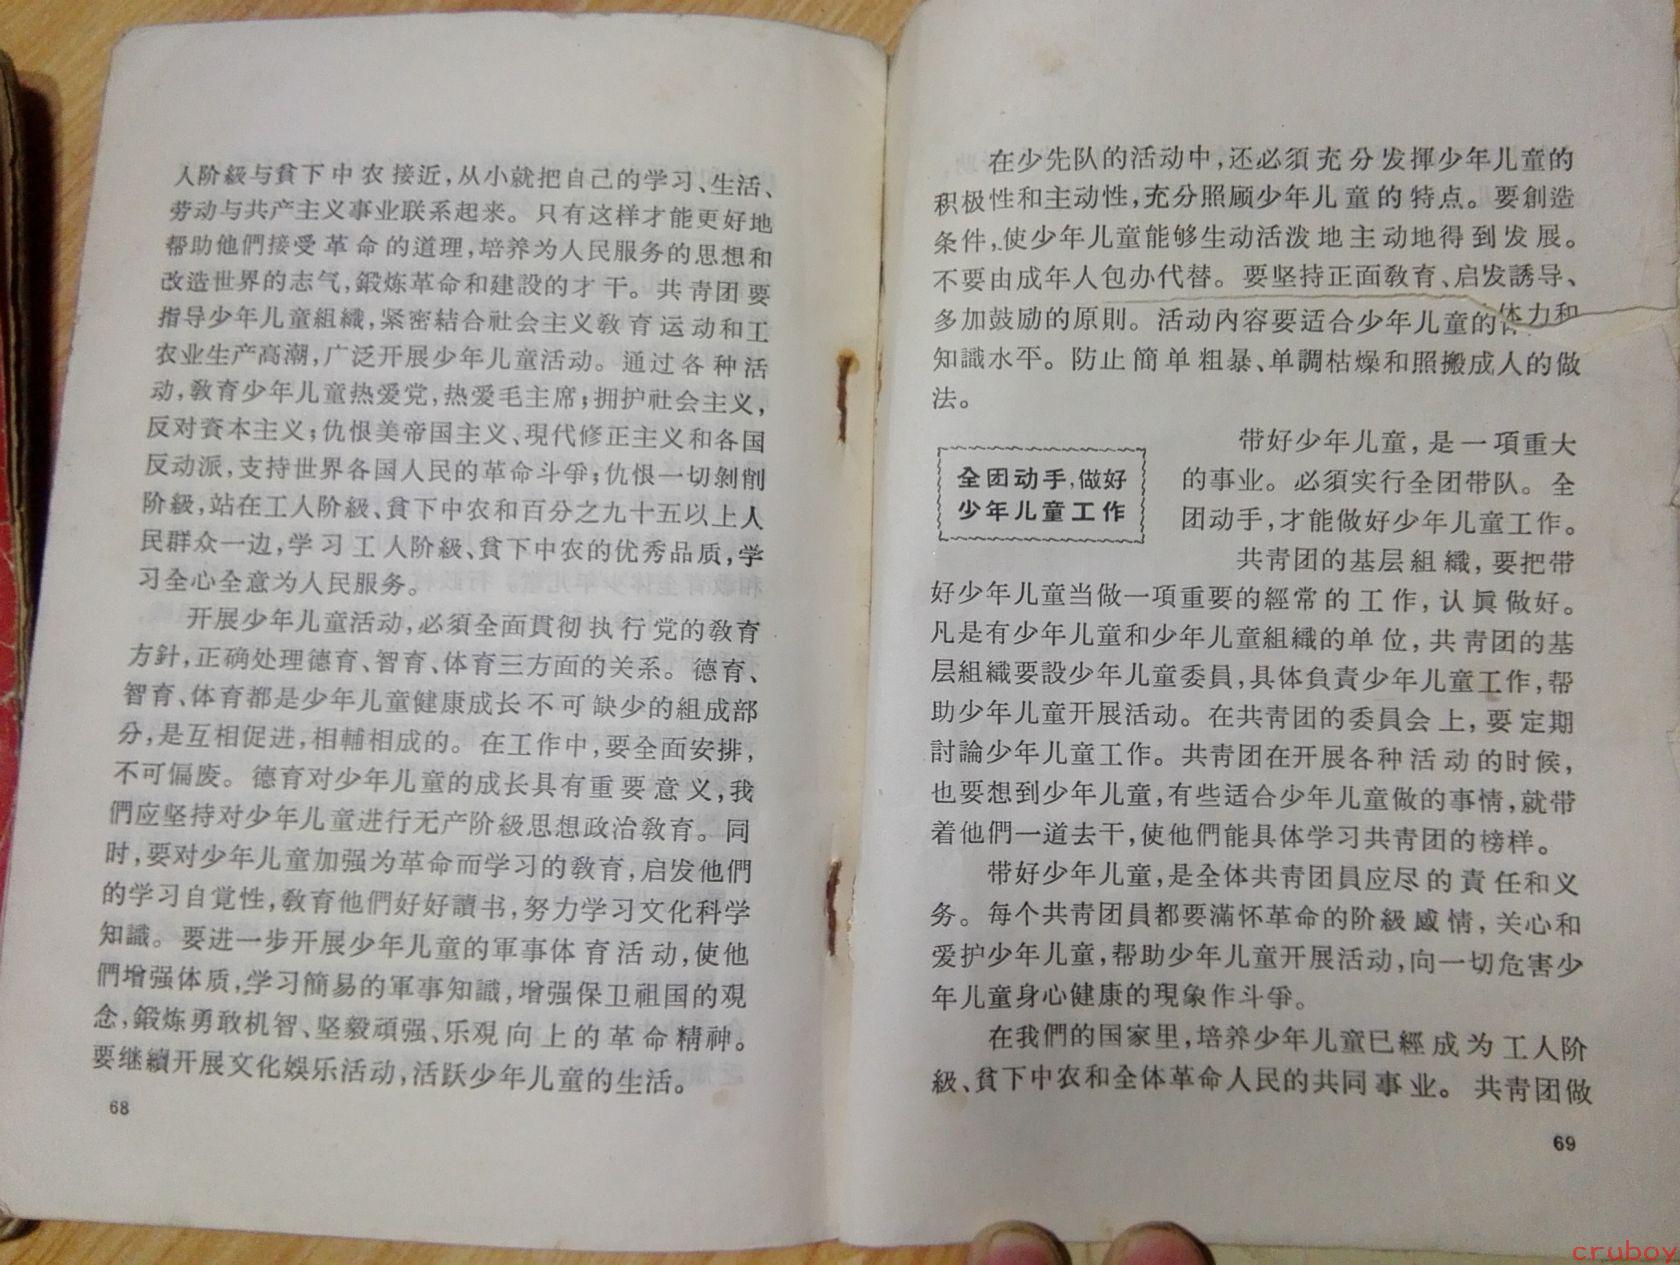 人阶級与貧下中农接近,从小就把自己的学习、生活、
劳动与共产主义事业联系起来。只有这样才能更好地
帮助他們接受革命的道理,培养为人民服务的思想和
改造世界的志气,鍛炼革命和建設的才干。共青团要
指导少年儿童組織,紧密結合社会主义教育运动和工
农业生产高潮,广泛开展少年儿童活动。通过各种活
动,教育少年儿童热爱党,热爱毛主席;拥护社会主义,
反对資本主义;仇恨美帝国主义、現代修正主义和各国
反动派,支持世界各国人民的革命斗爭;仇恨一切剝削
阶級,站在工人阶級、貧下中农和百分之九十五以上人
民群众一边,学习工人阶級、貧下中农的优秀品质,学
习全心全意为人民服务。
开展少年儿童活动,必須全面貫彻执行党的教育
方針,正确处理德育、智育、体育三方面的关系。德育、
智育、体育都是少年儿童健康成长不可缺少的組成部
分,是互相促进,相輔相成的。在工作中,要全面安排,
不可偏废。德育对少年儿童的成长具有重要意义,我
們应坚持对少年儿童进行无产阶級思想政治教育。同
时,要对少年儿童加强为革命而学习的教育,启发他們
的学习自覚性,教育他們好好讀书,努力学习文化科学
知識。要进一步开展少年儿童的軍事体育活动,使他
們增强体质,学习簡易的軍事知識,增强保卫祖国的观
念,鍛炼勇敢机智、坚毅頑强、乐观向上的革命精神。
要继續开展文化娱乐活动,活跃少年儿童的生活。
68
在少先队的活动中,还必須充分发揮少年儿童的
积极性和主动性,充分照顾少年儿童的特点。要創造
条件,使少年儿童能够生动活泼地主动地得到发展。
不要由成年人包办代替。要坚持正面教育、启发誘导、
多加鼓励的原則。活动內容要适合少年儿童的体力和
知識水平。防止簡单粗暴、单調枯燥和照搬成人的做
法。
全团动手,做好
少年儿童工作
带好少年儿童,是一項重大
的事业。必須实行全团带队。全
团动手,才能做好少年儿童工作。
共青团的基层組織,要把带
好少年儿童当做一項重要的經常的工作,认眞做好。
凡是有少年儿童和少年儿童組織的单位,共青团的基
层組織要設少年儿童委員,具体負責少年儿童工作,帮
助少年儿童开展活动。在共青团的委員会上,要定期
討論少年儿童工作。共青团在开展各种活动的时候,
也要想到少年儿童,有些适合少年儿童做的事情,就带
着他們一道去干,使他們能具体学习共青团的榜样。
带好少年儿童,是全体共青团員应尽的責任和义
务。每个共青团員都要滿怀革命的阶級感情,关心和
爱护少年儿童,帮助少年儿童开展活动,向一切危害少
年儿童身心健康的現象作斗爭。
在我們的国家里,培养少年儿童已經成为工人阶
級、貧下中农和全体革命人民的共同事业。共青团做
69
cruboy